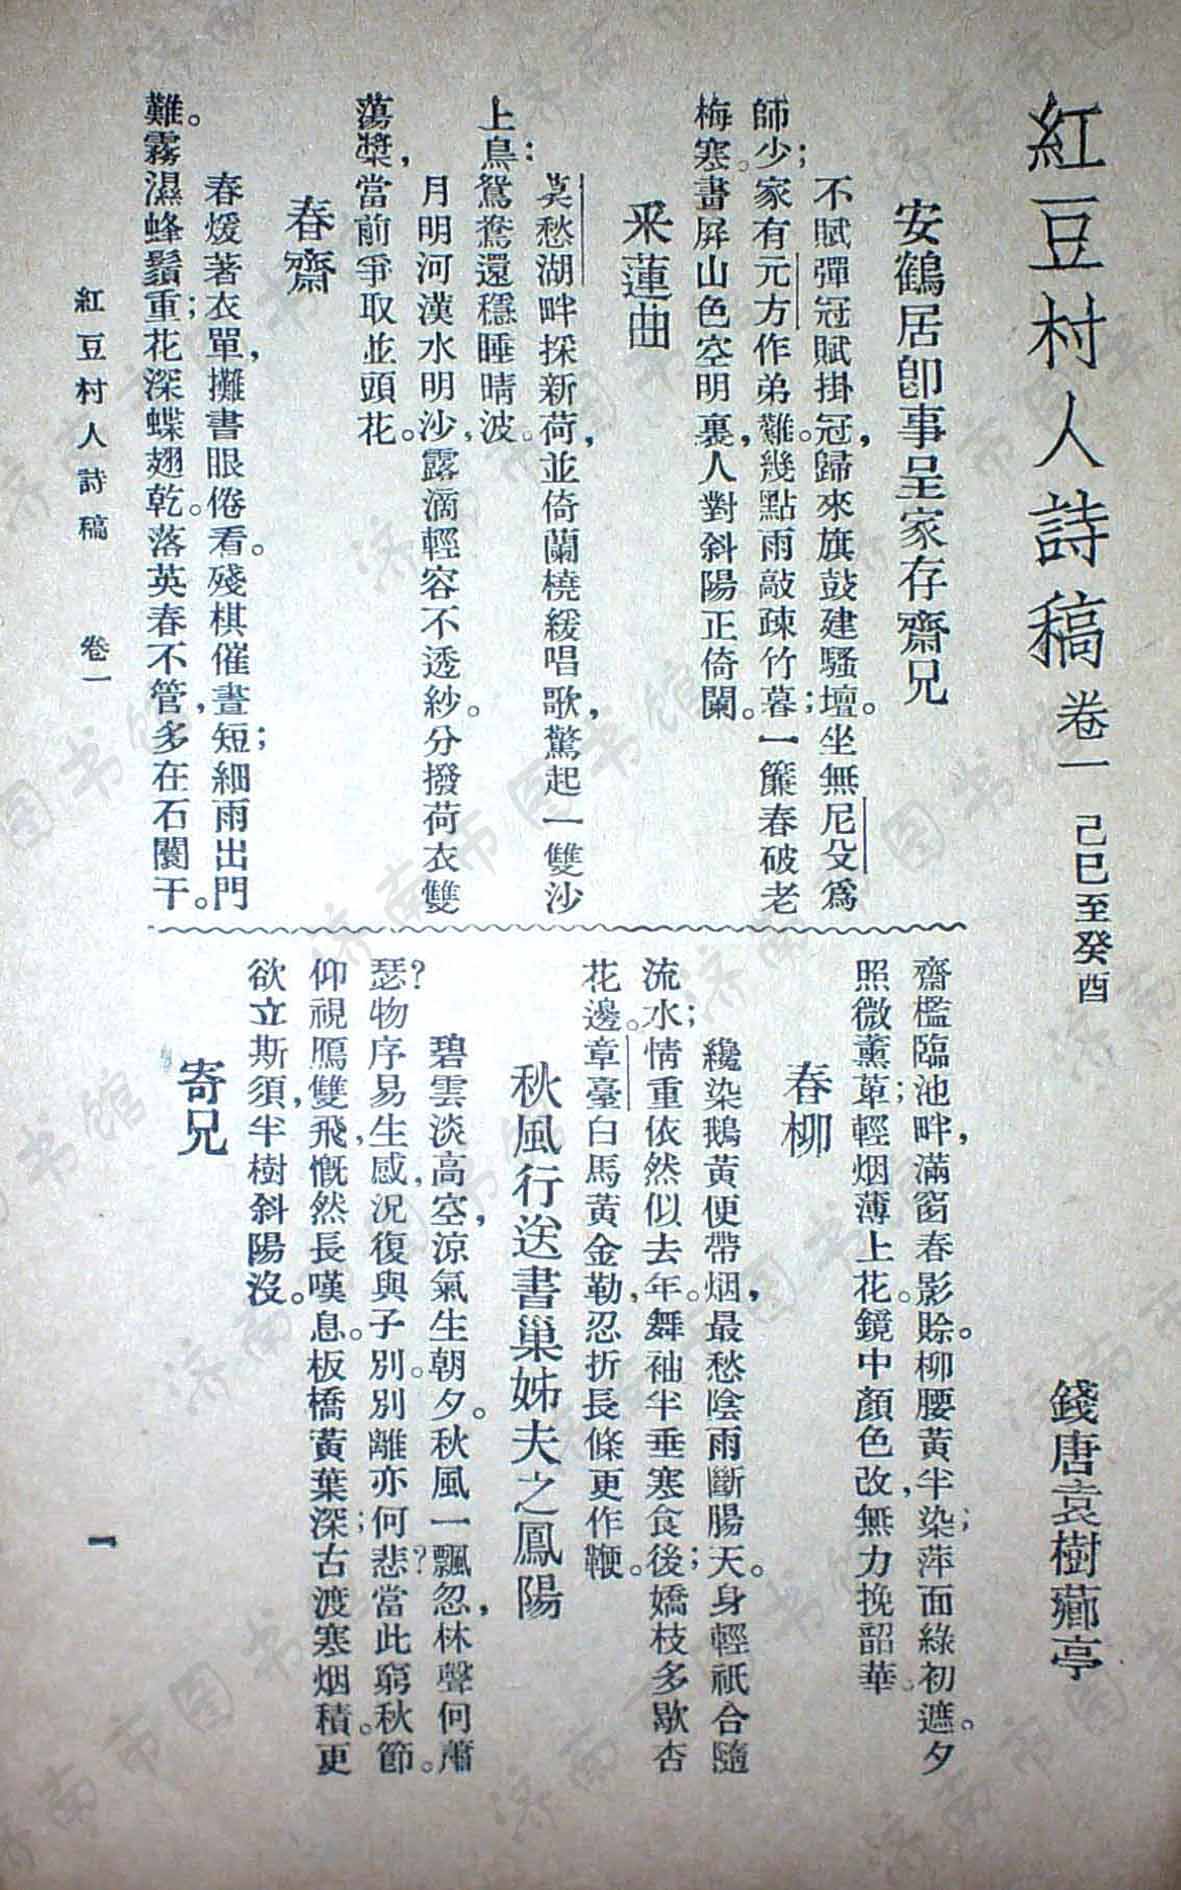 紅豆村人詩稿 卷一 己巳至癸酉
錢唐袁樹薌亭
安鶴居卽事呈家存齋兄
不賦彈冠賦掛冠，歸來旗鼓建騷壇。坐無尼父爲
師少；家有元方作弟難。幾點雨敲疎竹暮；一簾春破老
梅寒。畫屏山色空明裏，人對斜陽正倚闌。
采蓮曲
莫愁湖畔採新荷，並倚蘭橈緩唱歌，驚起一雙沙
上鳥：鴛鴦還穩睡晴波。
月明河漢水明沙，露滴輕容不透紗。分撥荷衣雙
蕩槳，當前爭取並頭花。
春齋
春煖著衣單，攤書眼倦看。殘棋催晝短；細雨出門
難。霧濕蜂鬚重；花深蝶翅乾。落英春不管，多在石闌干。
齋檻臨池畔，滿窗春影賒。柳腰黃半染；萍面綠初遮。夕
照微薰草；輕烟薄上花。鏡中顏色改，無力挽韶華。
春柳
纔染鵝黃便帶烟，最愁陰雨斷腸天。身輕祇合隨
流水；情重依然似去年。舞袖半垂寒食後；嬌枝多歇杏
花邊。章臺白馬黃金勒，忍折長條更作鞭。
秋風行送書巢姊夫之鳳陽
碧雲淡高空，涼氣生朝夕。秋風一飄忽，林聲何蕭
瑟？物序易生感，況復與子別。別離亦何悲？當此窮秋節。
仰視鴈雙飛，慨然長嘆息。板橋黃葉深；古渡寒烟積。更
欲立斯須，半樹斜陽沒。
寄兄
紅豆村人詩稿 卷一
一
济南市图书馆